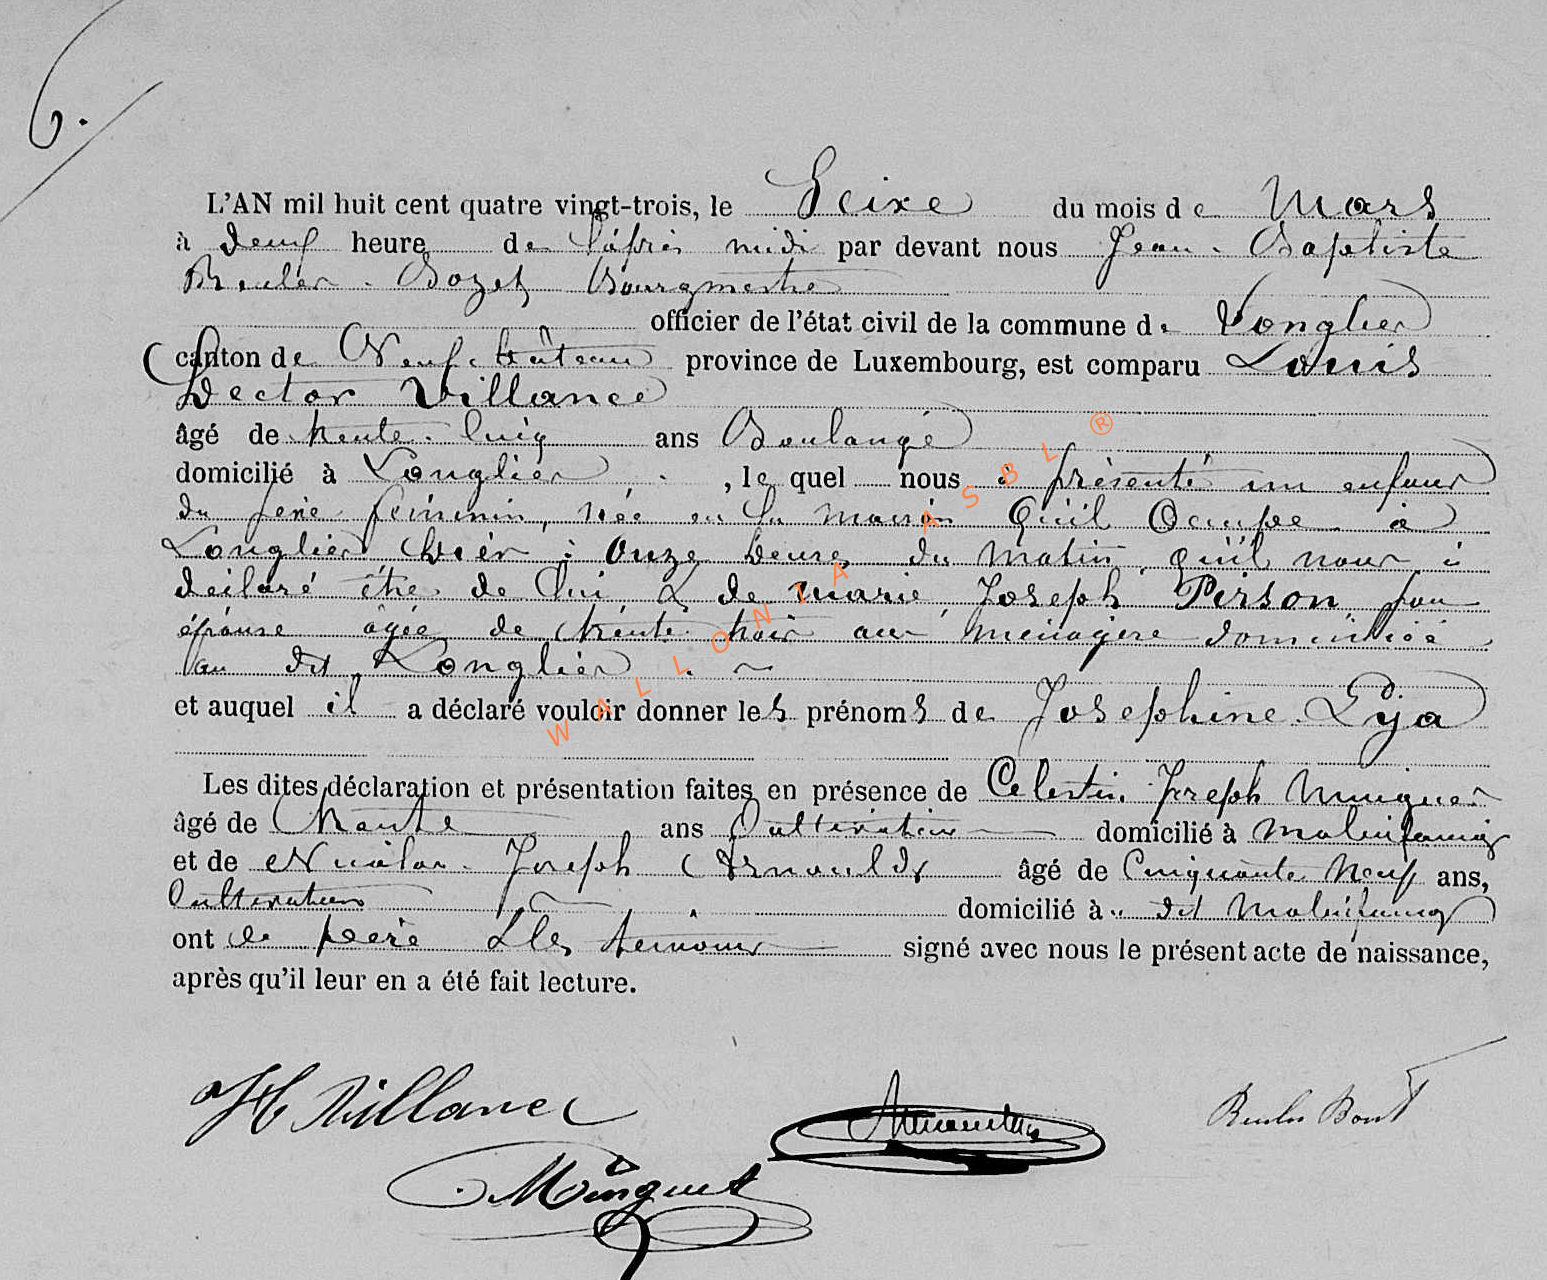 6.
L'AN mil huit cent quatre vingt-trois, le Seixe du mois de Mars
à deux heure de l'après midi par devant nous Jean-Baptiste
Bozet Bourgmestre
officier de l'état civil de la commune de Longlier
canton de Neufchâteau province de Luxembourg, est comparu Louis
Hector Villance
âgé de trente-cinq ans Boulangé
domicilié à Longlier, le quel nous à présenté un enfant
du sexe féminin, née en la maison qu'il Occupe à
Longlier hier à Onze heures du matin, qu'il nous à
déclaré être de lui & de marie Joseph Pirson, son
épouse âgée de trente trois ans ménagère domiciliée
au dit Longlier
et auquel il a déclaré vouloir donner les prénoms de Josephine Lya
Les dites déclaration et présentation faites en présence de Celestin Joseph
âgé de trente ans Cultivateur domicilié à Molinfaing
et de Nicolas-Joseph Arnould âgé de Cinquante Neuf ans,
Cultivateur domicilié à dit Molinfaing
ont le père & les témoins signé avec nous le présent acte de naissance,
après qu'il leur en a été fait lecture.
H Villance
Minguet
WALLONIA ASBL ®